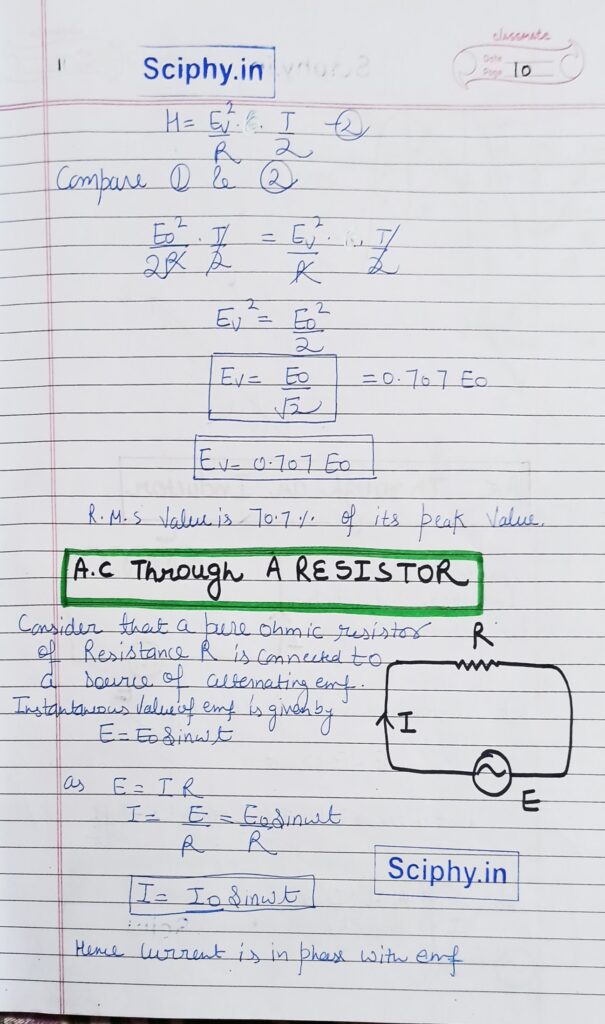 classmate
Date
Page 10
1 Sciphy.in
H = Ev²/R · T/2 -②
Compare ① & ②
E0²/2R · T/2 = Ev²/R · T/2
Ev² = E0²/2
Ev = E0/√2 = 0.707 E0
Ev = 0.707 E0
R.M.S Value is 70.7% of its peak value.
A.C Through A RESISTOR
Consider that a pure ohmic resistor
of Resistance R is connected to
a source of alternating emf.
Instantaneous Value of emf is given by
E = E0 Sinωt
R
I
E
as E = IR
I = E/R = E0 Sinωt/R
Sciphy.in
I = I0 Sinωt
Hence current is in phase with emf